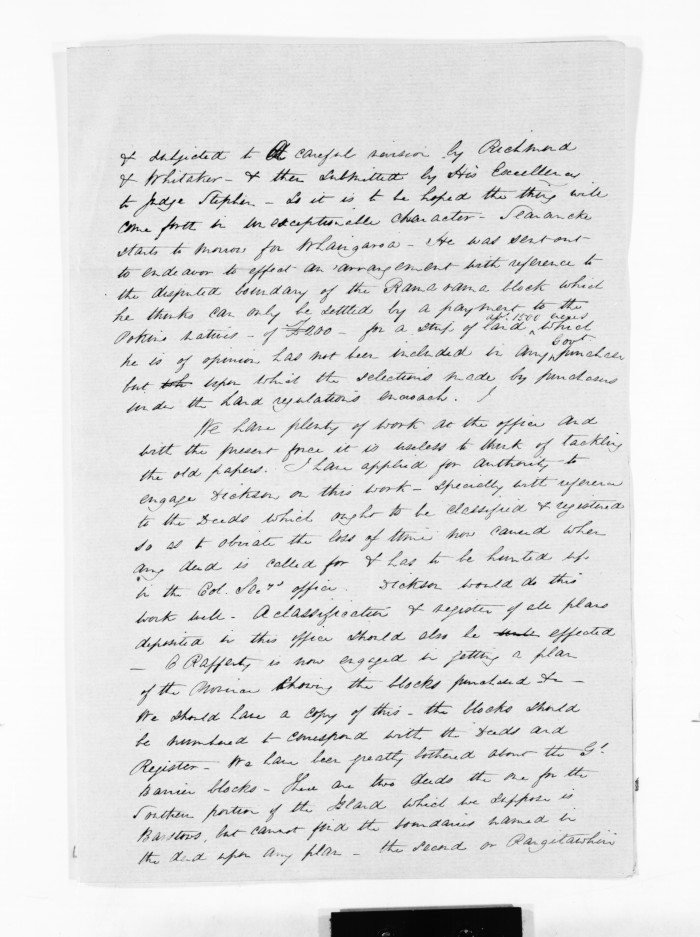 & subjected to a careful revision by Richmond
& Whitaker - & then submitted by His Excellency
to Judge Stephen - So it is to be hoped the thing will
come forth in unexceptionable character - Searancke
starts to morrow for Whaingaroa - He was sent out
to endeavor to effect an arrangement with reference to
the disputed boundary of the Ramarama block which
he thinks can only be settled by a payment to the
Pokino natives - of £200 - for a strip of land abt. 1500 acres which
he is of opinion has not been included in any Govt purchase
but upon which the selections made by purchasers
under the land regulations encroach.
We have plenty of work at the office and
with the present force it is useless to think of tackling
the old papers. I have applied for authority to
engage Dickson on this work - specially with reference
to the Deeds which ought to be classified & registered
so as to obviate the loss of time now caused when
any deed is called for & has to be hunted up
in the Col. Secys office. Dickson would do this
work well - A classification & register of all plans
deposited in this office should also be effected
- O Rafferty is now engaged in getting a plan
of the Province showing the blocks purchased &c -
We should have a copy of this - the blocks should
be numbered to correspond with the Deeds and
Register - We have been greatly bothered about the Gt
Barrier blocks - There are two deeds the one for the
Southern portion of the Island which we suppose is
Barstows, but cannot find the boundaries named in
the deed upon any plan - the second or Rangitawhiri